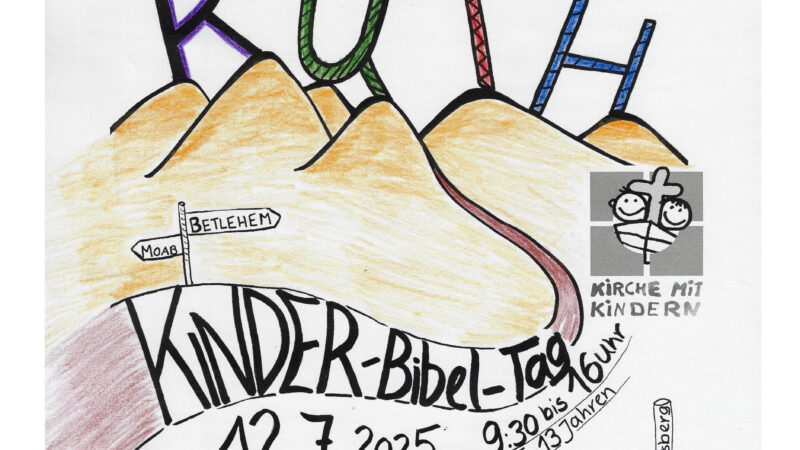 RUTH
BETLEHEM
MOAB
KiRCHE MiT
KiNDERN
KiNDER-Bibel-Tag
12.7.2025
9:30 bis 16 Uhr
13 Jahren
sberg